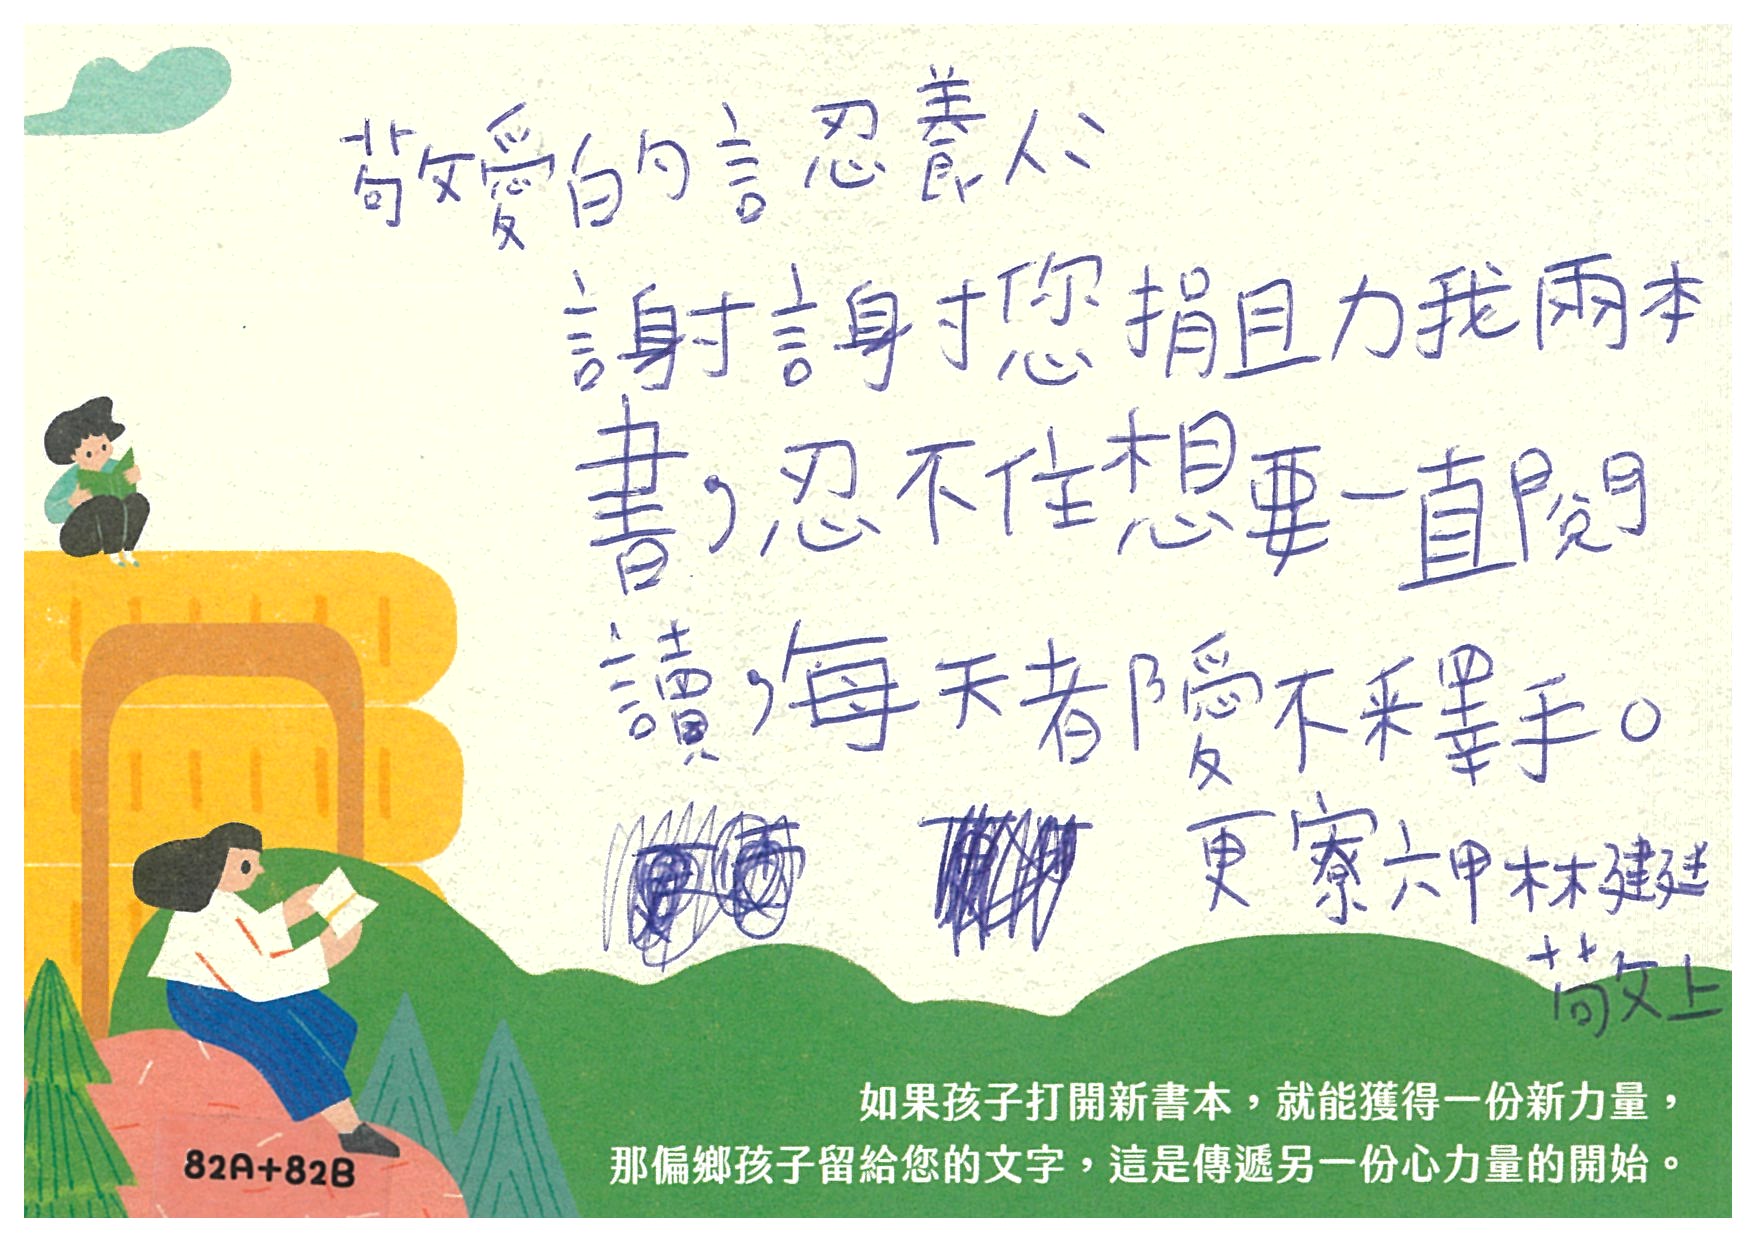 敬愛的認養人：
謝謝您捐助我兩本
書，忍不住想要一直閱
讀，每天都愛不釋手。
更寮六甲林建廷
敬上
如果孩子打開新書本，就能獲得一份新力量，
那偏鄉孩子留給您的文字，這是傳遞另一份心力量的開始。
82A+82B